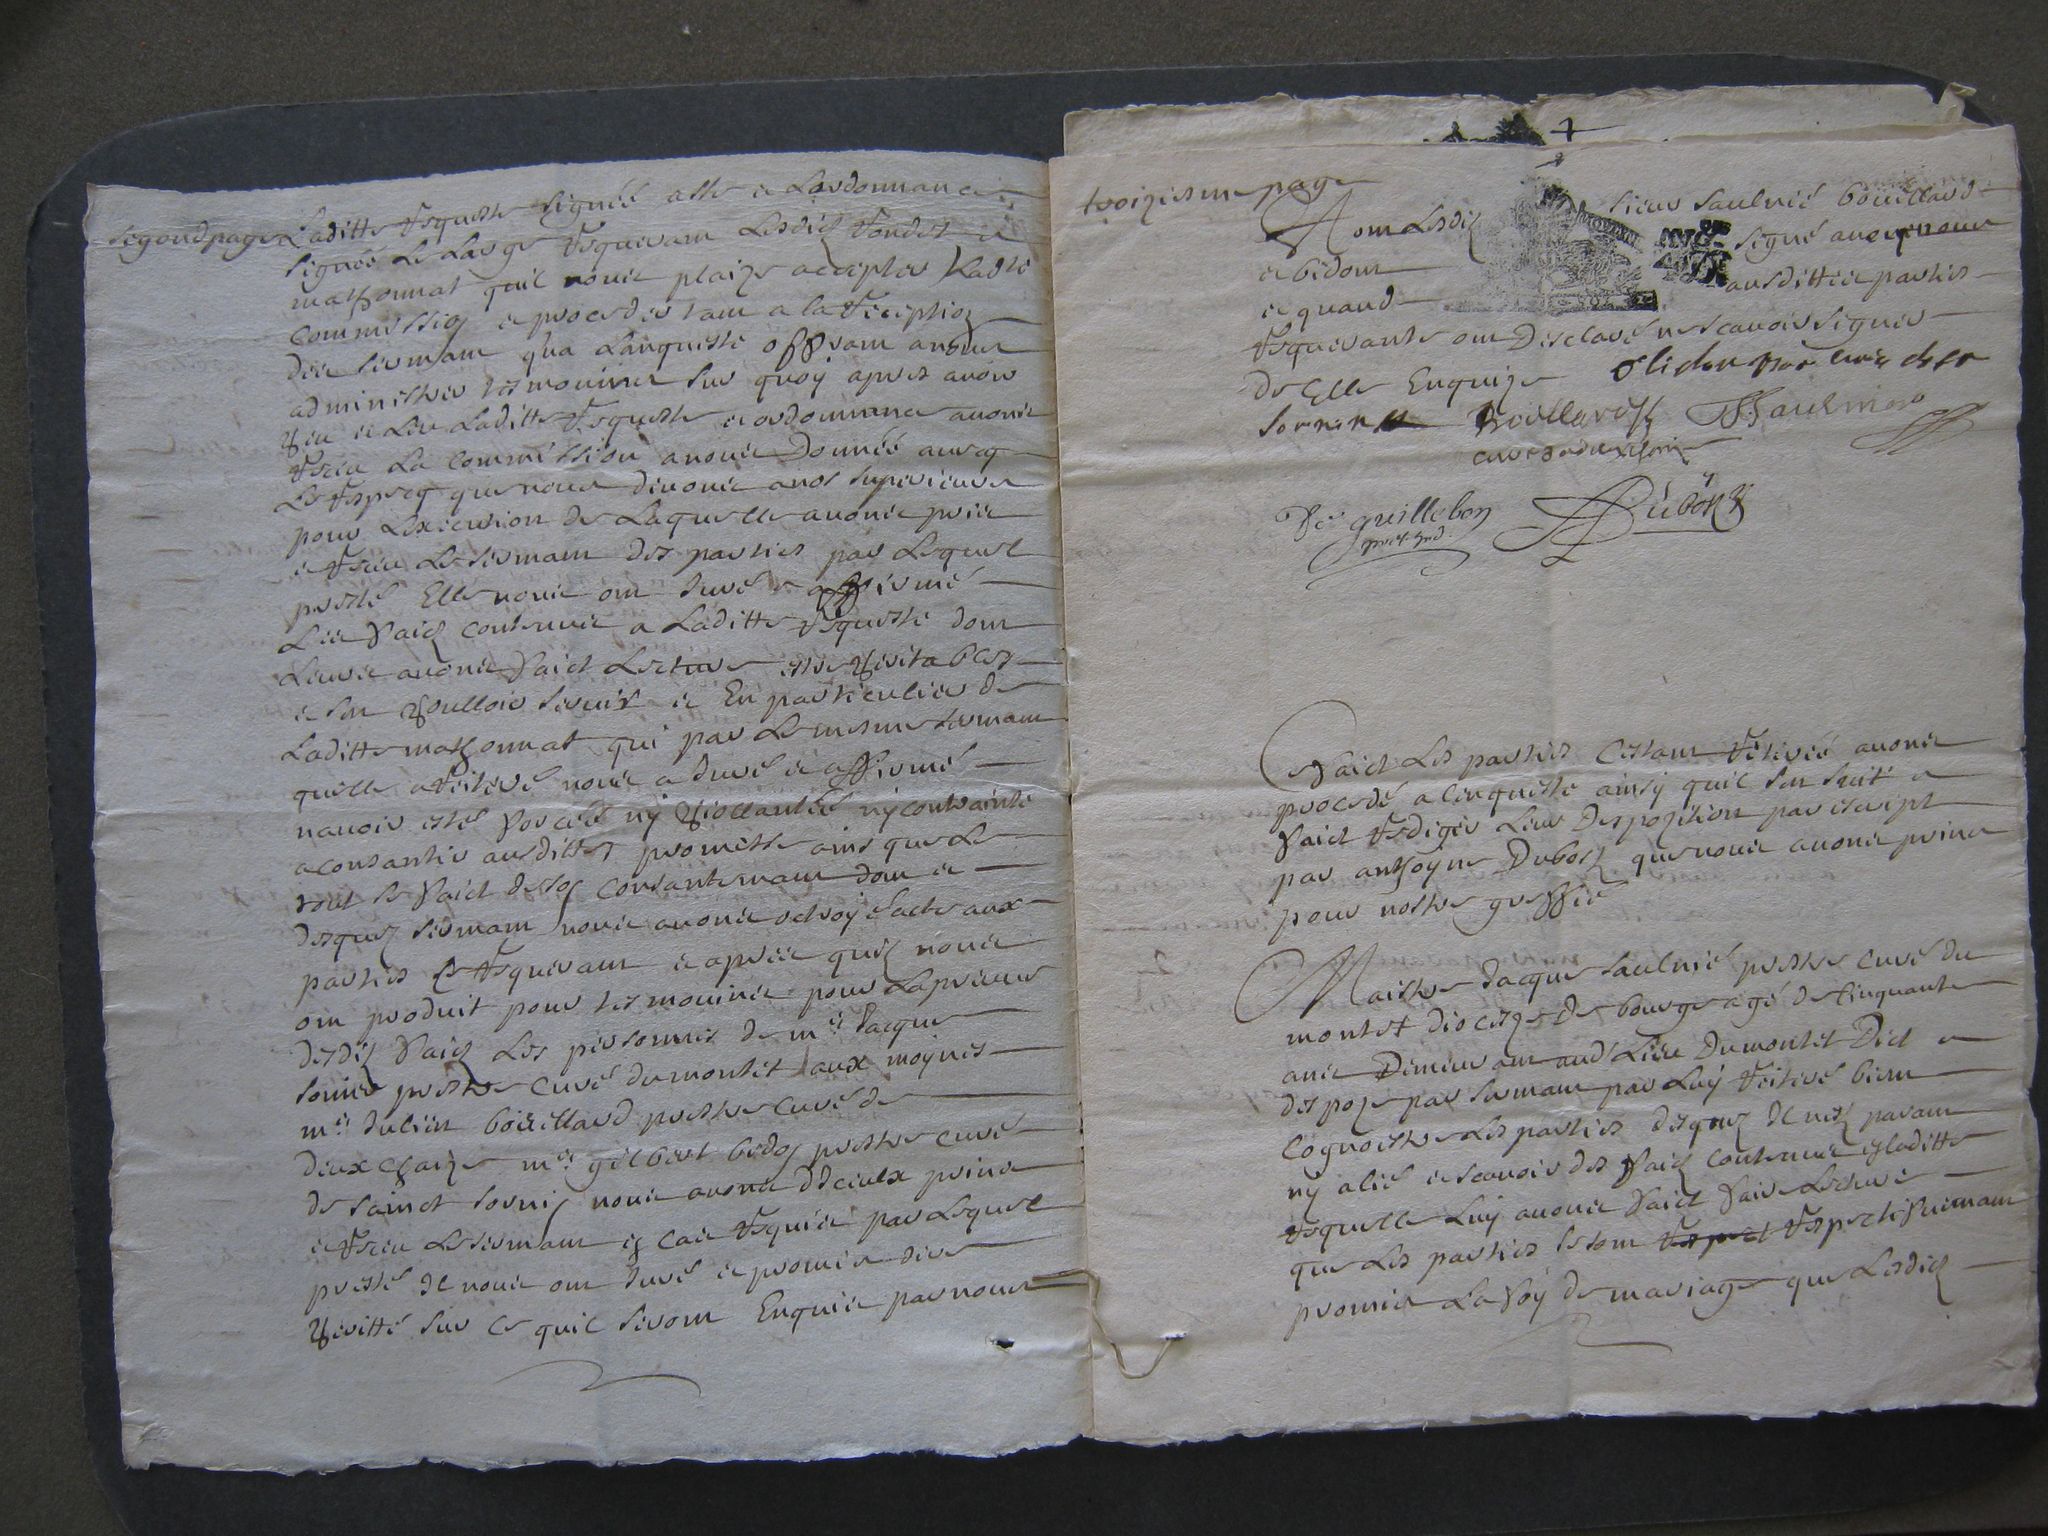 segond page Laditte Requeste signée alle et Lordonnance
signée Le Large Requerant Lesdicz Rondet et
mathonnat quil nous plaize accepter Ladte
commission et proceder tant a la Reception
des sermant qua Lanqueste offrant ansur
administrer tesmouins sur quoy apres avoir
veu et Leu Laditte Requeste et ordonnance avons
Receu La commission a nous Donnée avecq
Le Respecq que nous devons a nos superieurs
pour Lexecution de Laquelle avons pris
et Receu Le sermant des parties par Lequel
presté Elle nous ont Juré et affirmé
Les faicz contenus a Laditte Requeste dont
Leurs avons faict Lecture estre veritables
et san voulloir servir et En particulier de
Laditte mathonnat qui par Le mesme sermant
quelle a Reiteré nous a Juré et affirmé
navoir esté forcée ny viollantée ny contrainte
a consantir ausdittes promesse ains que Le
tout se faict de son consantemant dont et
desquez sermant nous avons octroyé acte aux
parties Ce Requerant et apres quilz nous
ont produit pour tesmouins pour La preuve
desdiz faicz Les personnes de mre Jacque
sonier prestre curé du montet aux moynes
mre Julien boüellard prestre curé de
deux chaize mre gilbert bidon prestre curé
de sainct sornin nous avons Diceulx prins
et Receu Le sermant en cas Requis par Lequel
presté Il nous ont Juré et promis dire
veritté sur ce quil seront Enquis par nous
troiziesme page
A ont Lesdiz sieur Saulnié boüellard
et bidont signé avecq nous
et quand ausdittes parties
Requerante ont Desclaré ne scavoir signer
de Elle Enquize Olidon curé de st
sornin Boillard Saulnier
curé de deux chaize
De guillebon Dubost
Et faict Les parties Cestant Retirés avons
procedé a lenqueste ainsy quil san suit et
faict Rediger Leur Despozition par escript
par anthoyne Dubost que nous avons prins
pour nostre greffié
Maistre Jacque saulnié prestre curé du
montet diocese de bourge agé de cinquante
ans Demeurant aud Lieu Dumontet Dict et
despoze par sermant par Luy Reiteré bien
cognoistre Les parties desquez Il nest parant
ny alié et scavoir des faicz contenus en laditte
Requeste Luy avons faict faire Lecture
que Les parties se sont Respect Respectivemant
promis La foy de mariage que Lesdiz